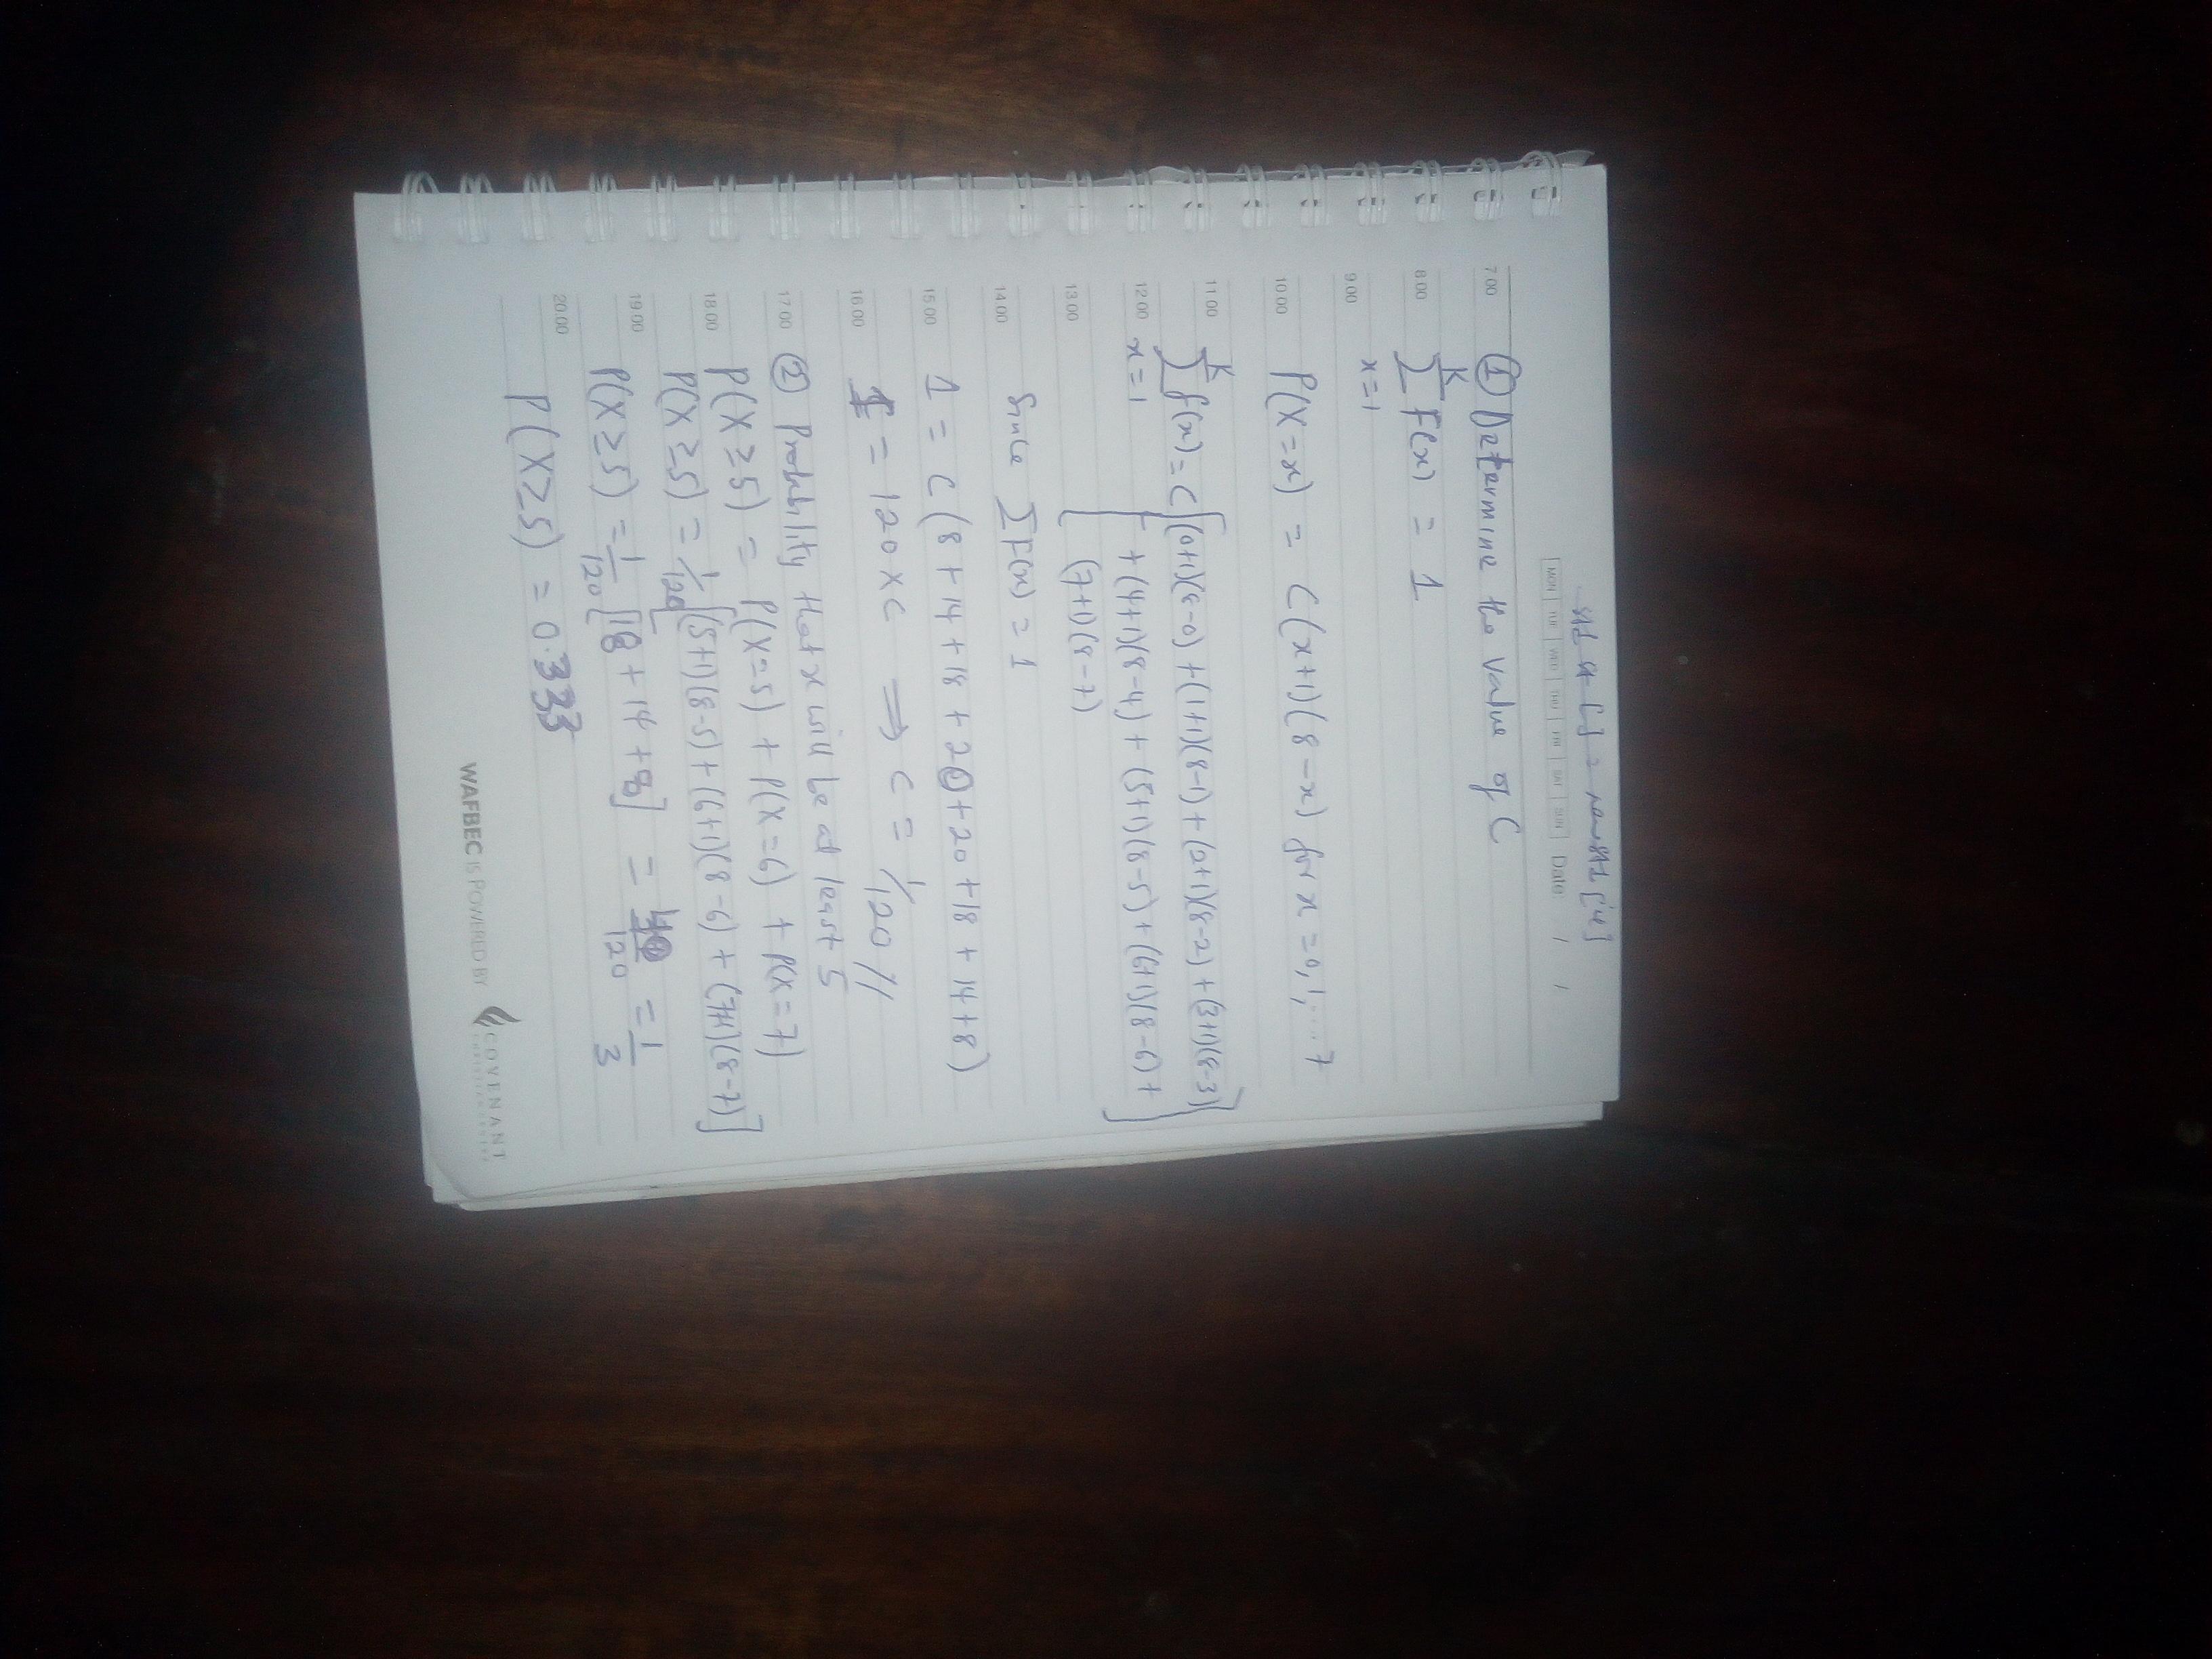 MON TUE WED THU FRI SAT SUN Date: / /
7.00 ① Determine the value of C
8.00 K ∑ F(x) = 1
9.00 x=1
10.00 P(X=x) = C(x+1)(8-x) for x = 0,1,...7
11.00 K ∑ f(x) = C[(0+1)(8-0)+(1+1)(8-1)+(2+1)(8-2)+(3+1)(8-3)]
12.00 x=1 [+(4+1)(8-4)+(5+1)(8-5)+(6+1)(8-6)+]
13.00 [(7+1)(8-7)
14.00 Since ∑F(x) = 1
15.00 1 = C(8+14+18+20+20+18+14+8)
16.00 1 = 120 x C ⟹ C = 1/120 //
17.00 ② Probability that x will be at least 5
P(X≥5) = P(X=5) + P(X=6) + P(X=7)
18.00 P(X≥5) = 1/120[(5+1)(8-5)+(6+1)(8-6)+(7+1)(8-7)]
19.00 P(X≥5) = 1/120[18+14+8] = 40/120 = 1/3
20.00 P(X≥5) = 0.333
WAFBEC IS POWERED BY COVENANT